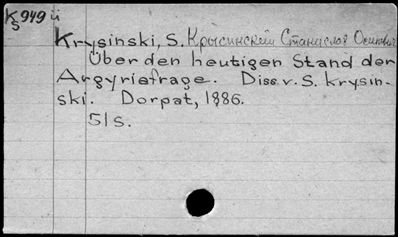 KS 949 ü
Krysinski, S. Крысинский Станислав Осипович
Über den heutigen Stand der
Argyriefrage. Diss v. S. Krysin-
ski. Dorpat, 1886.
51 S.